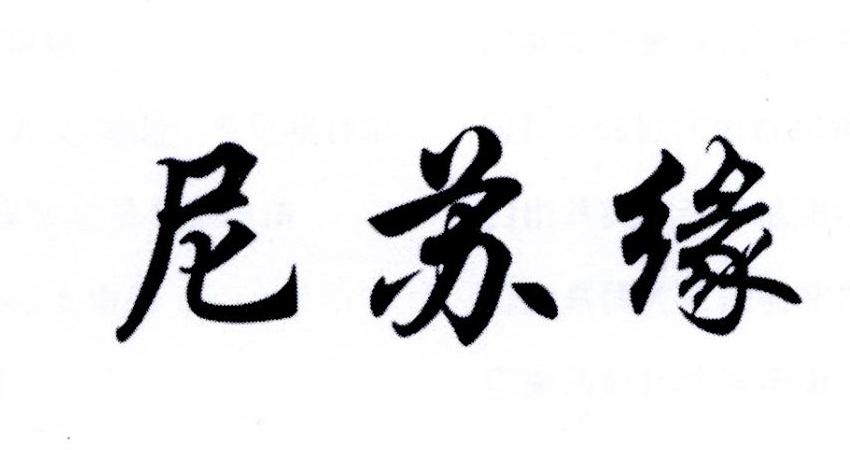 尼苏缘